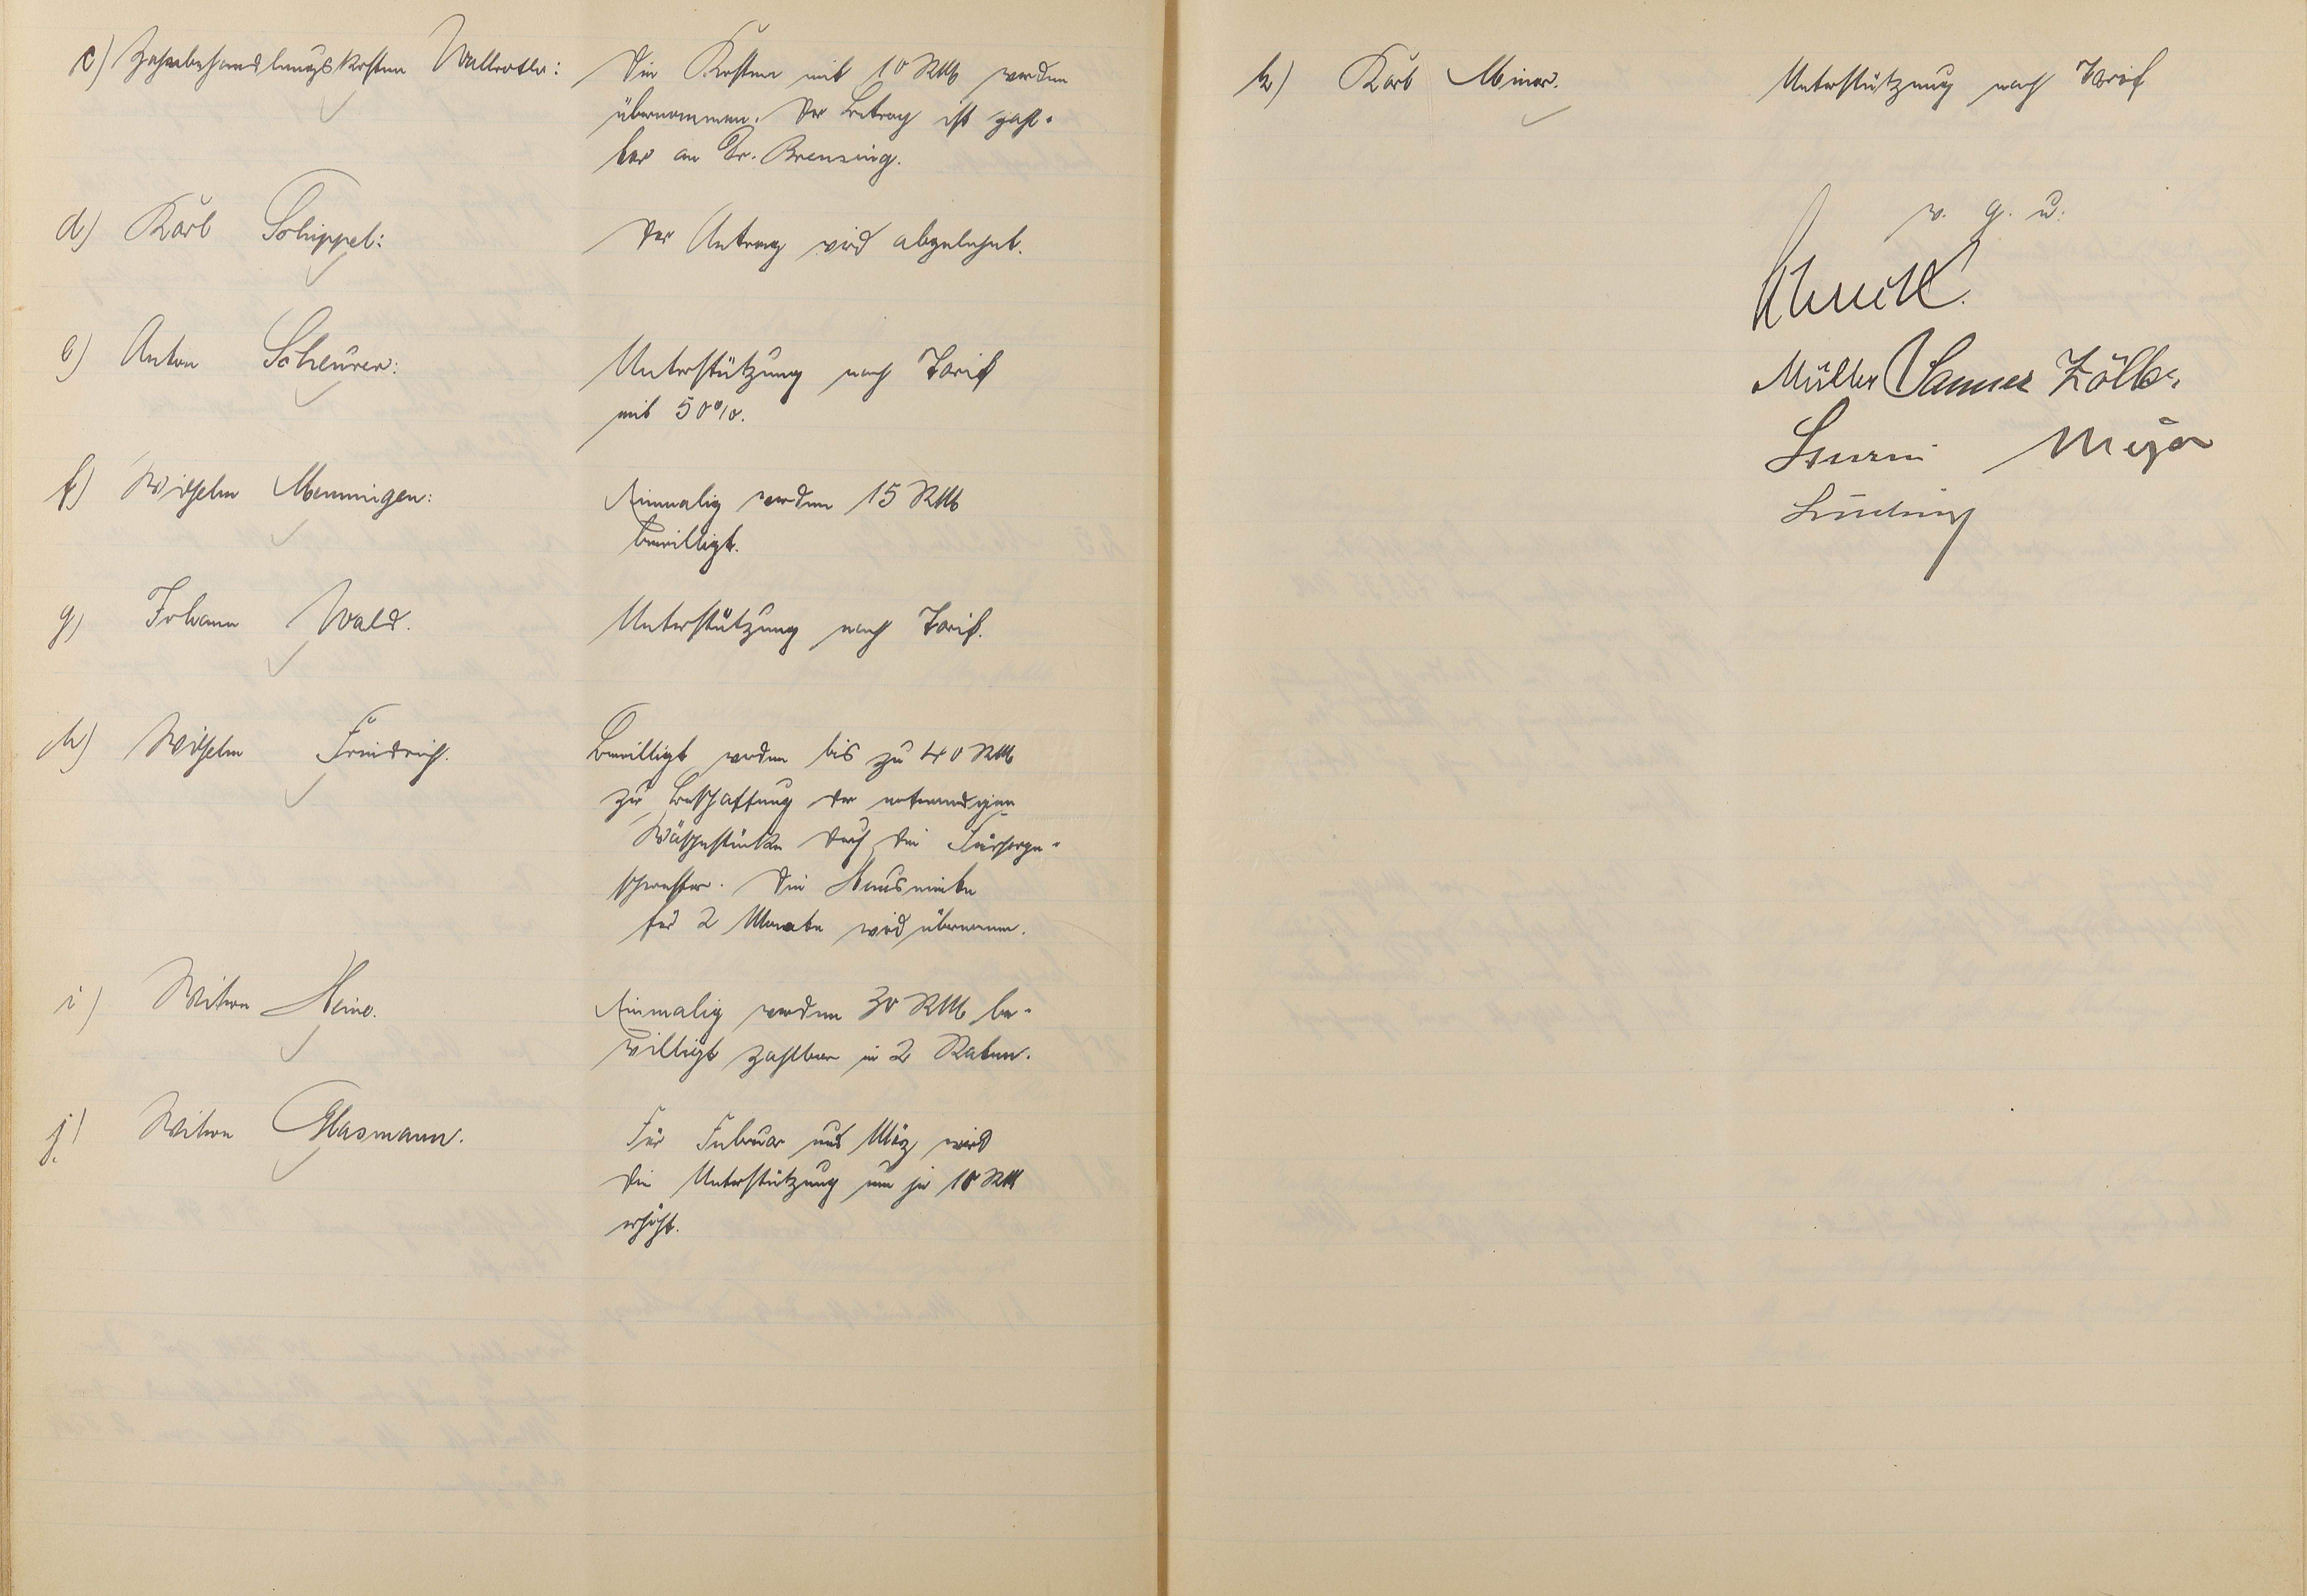 c) Zahnbehandlungskosten Wallroth:
Die Kosten mit 10 RM werden
übernommen. Der Betrag ist zahl-
bar an Dr. Brensing.
d) Karl Schippel:
Der Antrag wird abgelehnt.
e) Anton Scheurer:
Unterstützung nach Tarif
mit 50%.
f) Wilhelm Menningen:
Einmalig werden 15 RM
bewilligt.
g) Johann Wald.
Unterstützung nach Tarif.
h) Wilhelm Friedrich.
Bewilligt werden bis zu 40 RM
zur Beschaffung der notwendigen
Wäschestücke durch die Fürsorge-
schwester. Die Hausmiete
für 2 Monate wird übernomm.
i) Witwe Heine.
Einmalig werden 30 RM be-
willigt zahlbar in 2 Raten.
j) Witwe Glasmann.
Für Februar und März wird
die Unterstützung um je 10 RM
erhöht.
k) Karl Minor.
Unterstützung nach Tarif
v. g. u.
Müller
Meyer